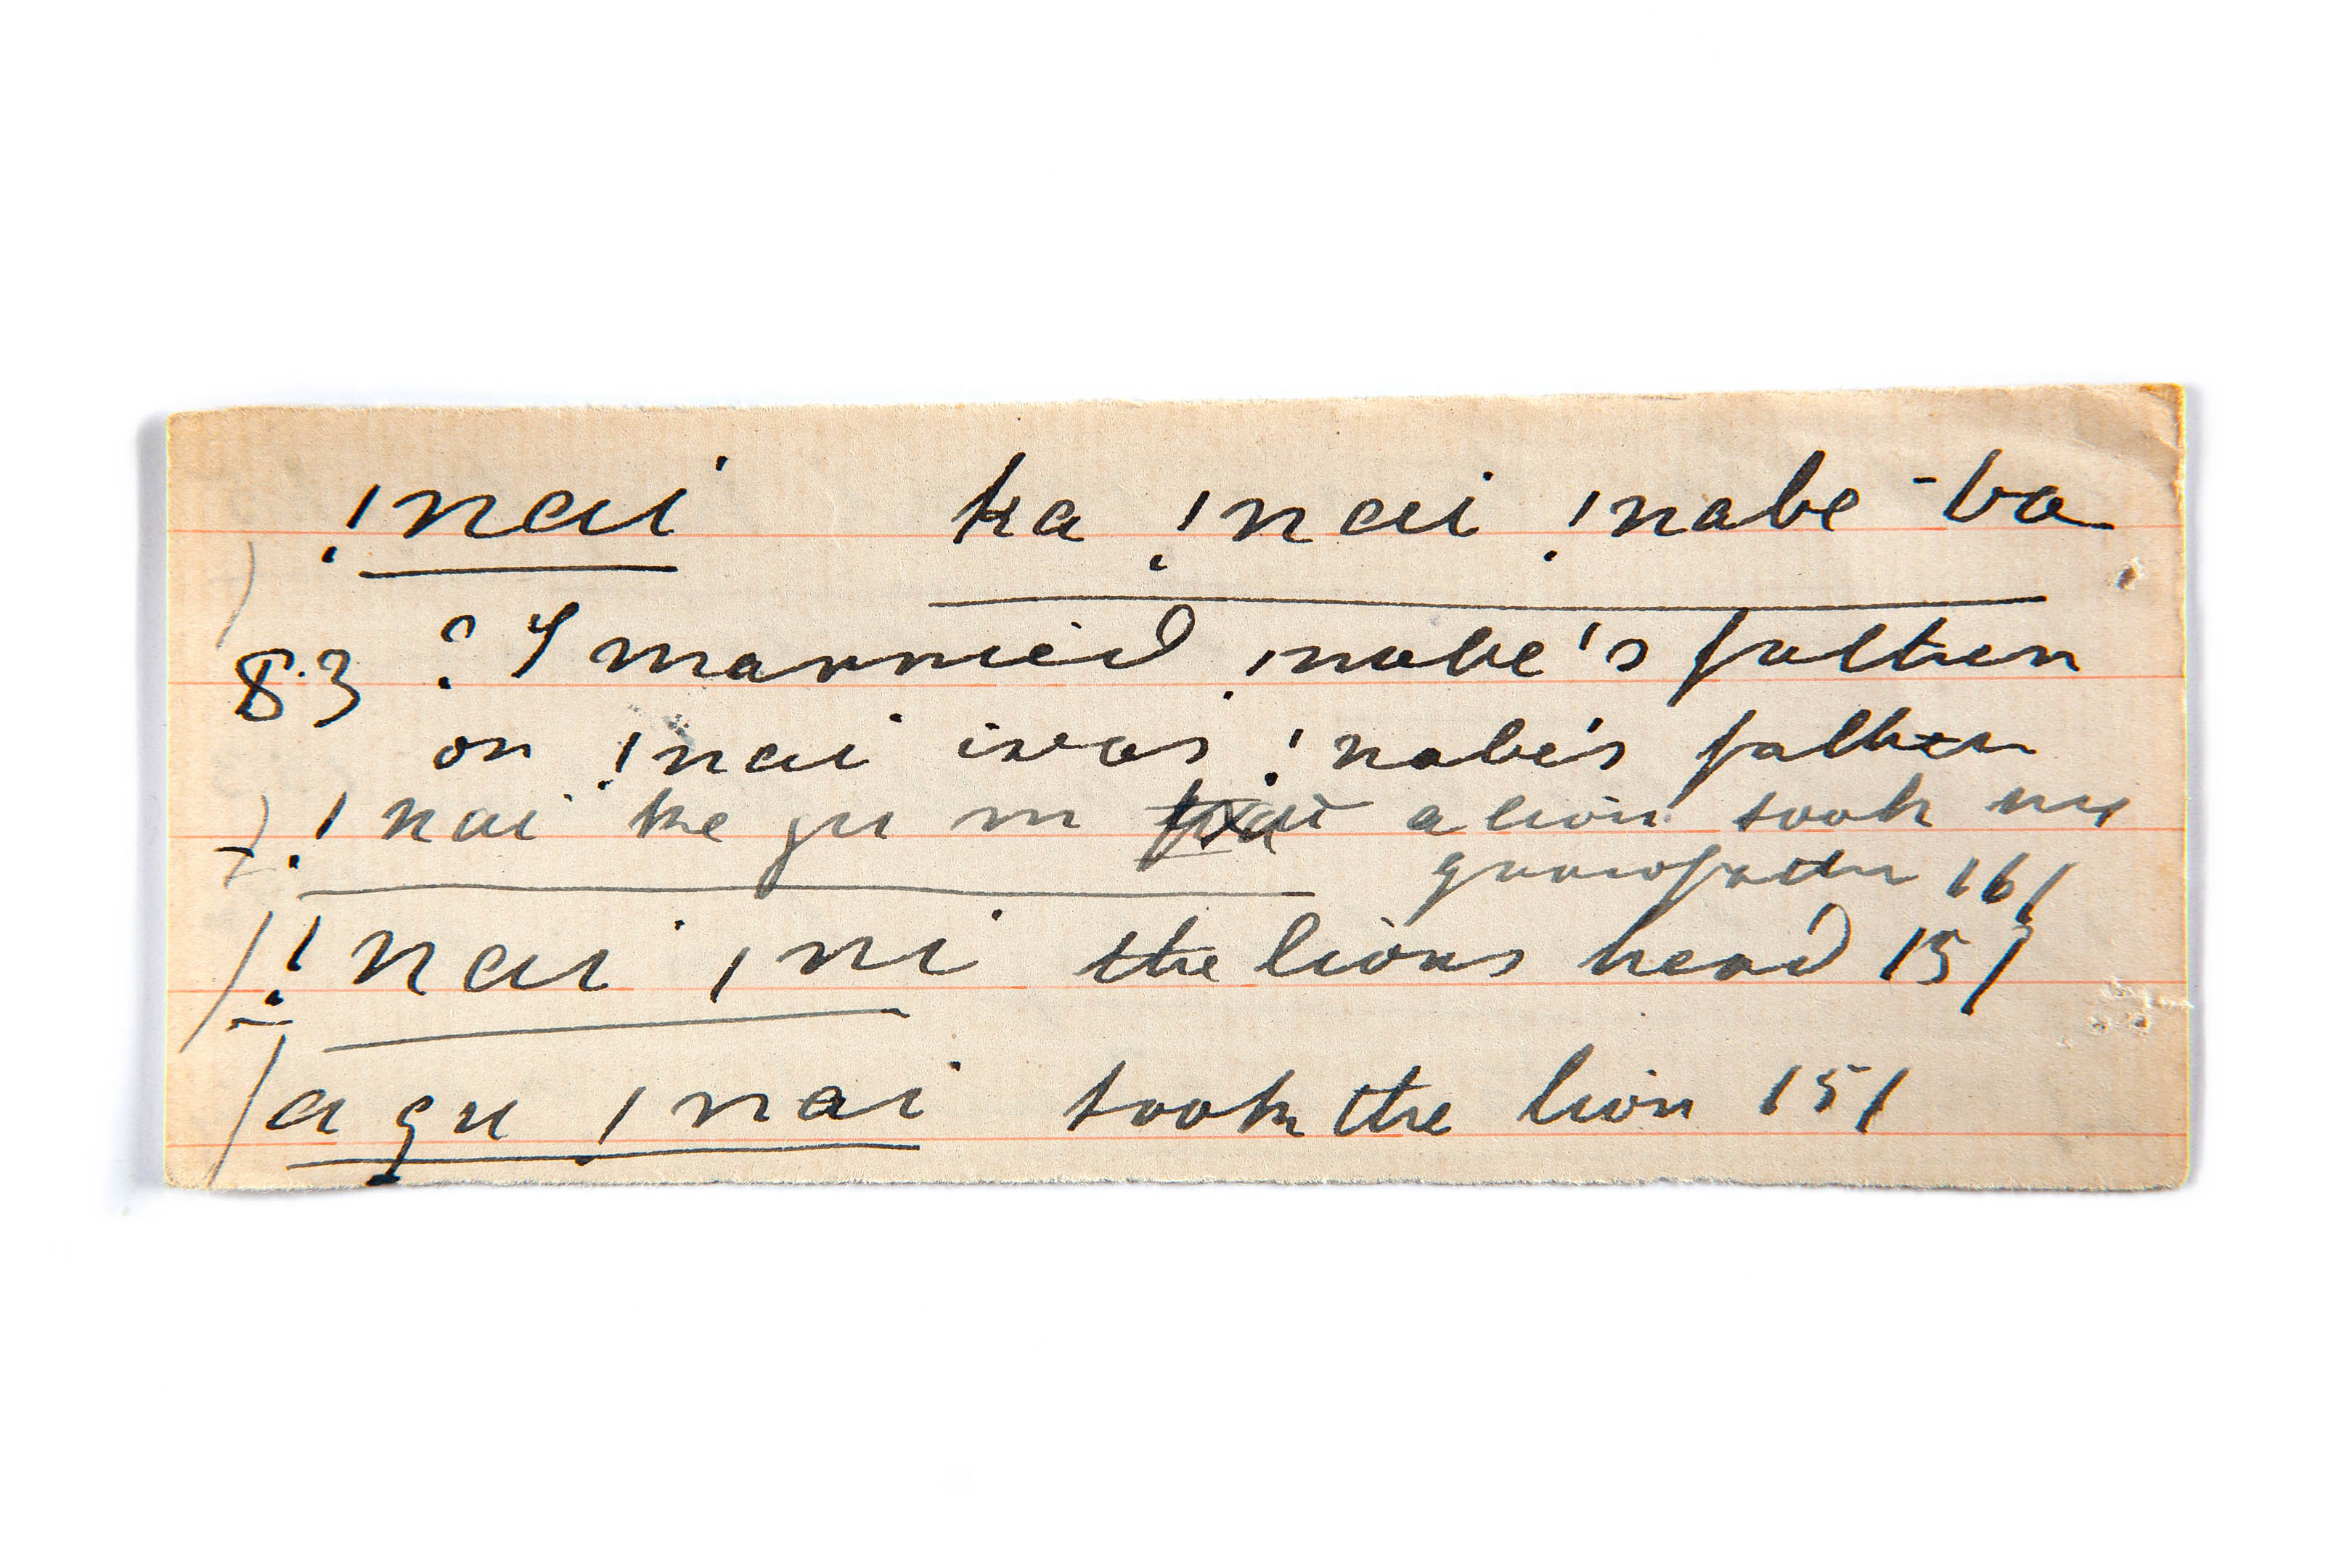 !nai ka !nai !nabe-ba
83 ? I married !nabe's father
or !nai was !nabe's father
!nai ke gu n a lion took my
grandfather 161
!nai |ni the lions head 151
a gu !nai took the lion 151